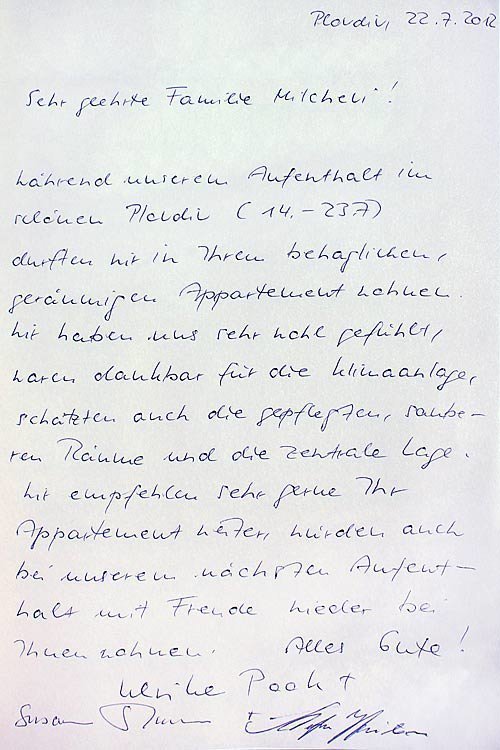 Plovdiv, 22.7.2012
Sehr geehrte Familie Milchevi!
während unserem Aufenthalt im
schönen Plovdiv (14.–23.7)
durften wir in Ihrem behaglichen,
geräumigen Appartement wohnen.
Wir haben uns sehr wohl gefühlt,
waren dankbar für die Klimaanlage,
schätzten auch die gepflegten, saube-
ren Räume und die zentrale Lage.
Wir empfehlen sehr gerne Ihr
Appartement weiter, würden auch
bei unserem nächsten Aufent-
halt mit Freude wieder bei
Ihnen wohnen. Alles Gute!
Ulrike
Susan